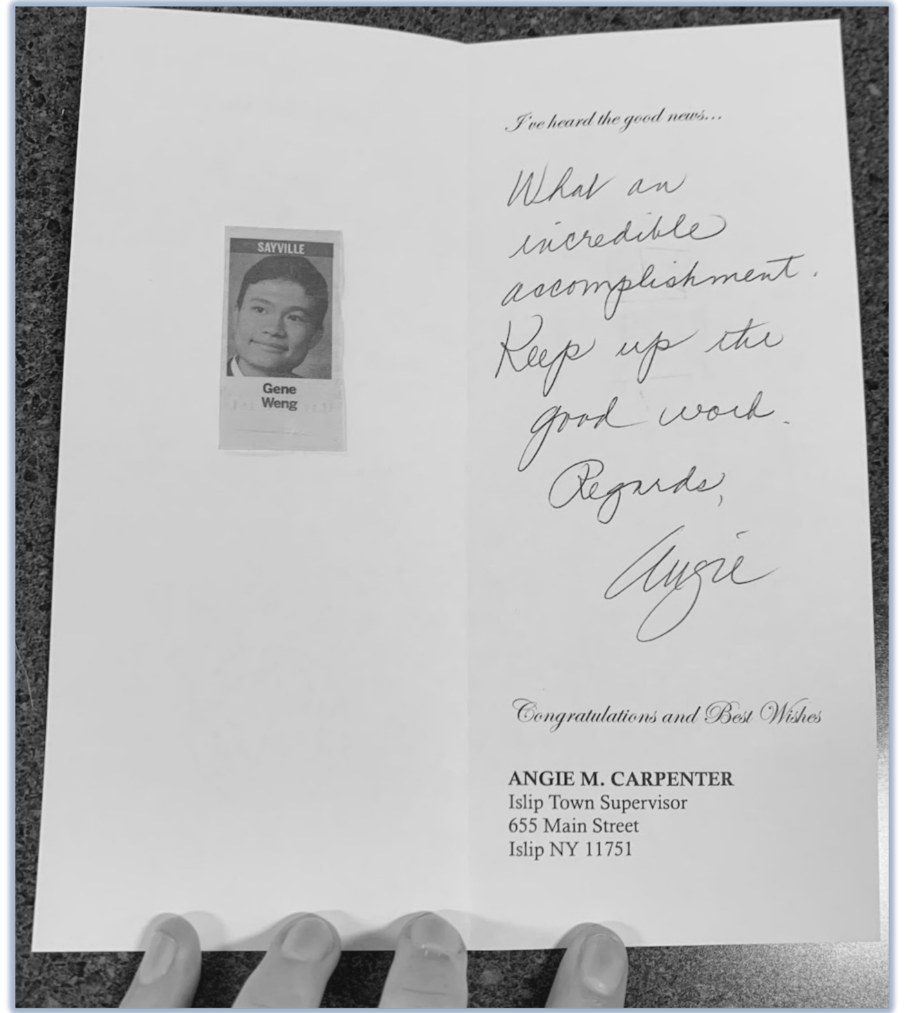 SAYVILLE
Gene
Weng
I've heard the good news...
What an
incredible
accomplishment.
Keep up the
good work.
Regards,
Angie
Congratulations and Best Wishes
ANGIE M. CARPENTER
Islip Town Supervisor
655 Main Street
Islip NY 11751